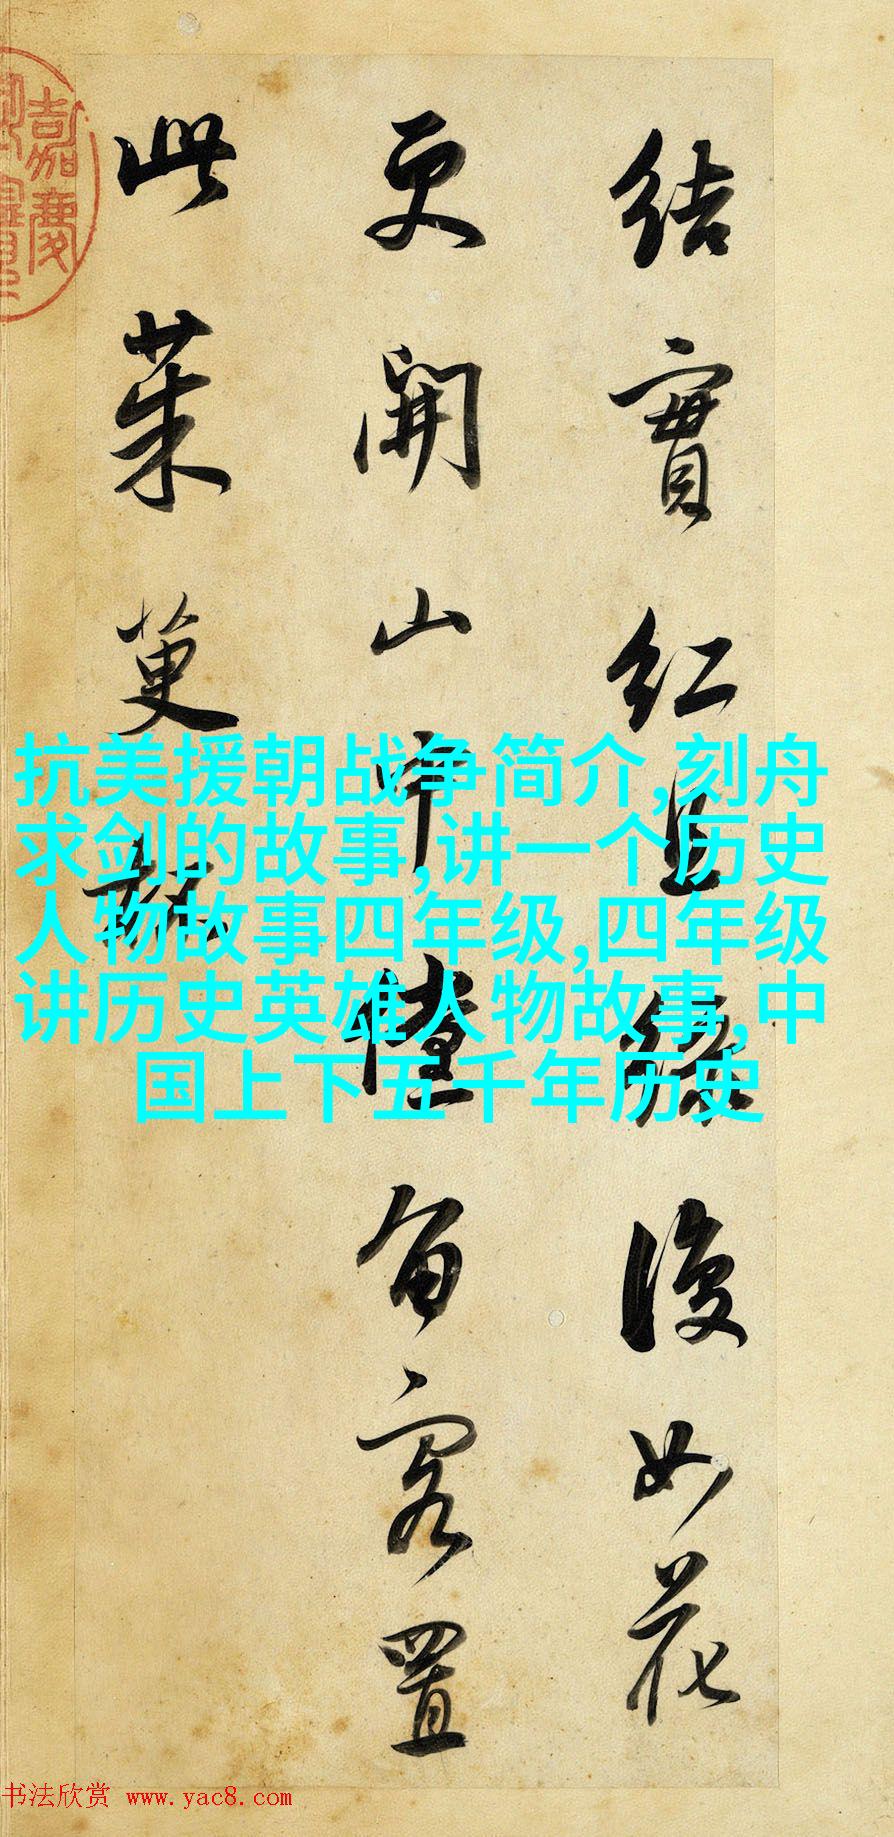 結實紅且綠復如花
更開山中儻留客置
此茱萸杯
嘉慶
抗美援朝战争简介,刻舟
求剑的故事,讲一个历史
人物故事四年级,四年级
讲历史英雄人物故事,中
国上下五千年历史
书法欣赏 www.yac8.com